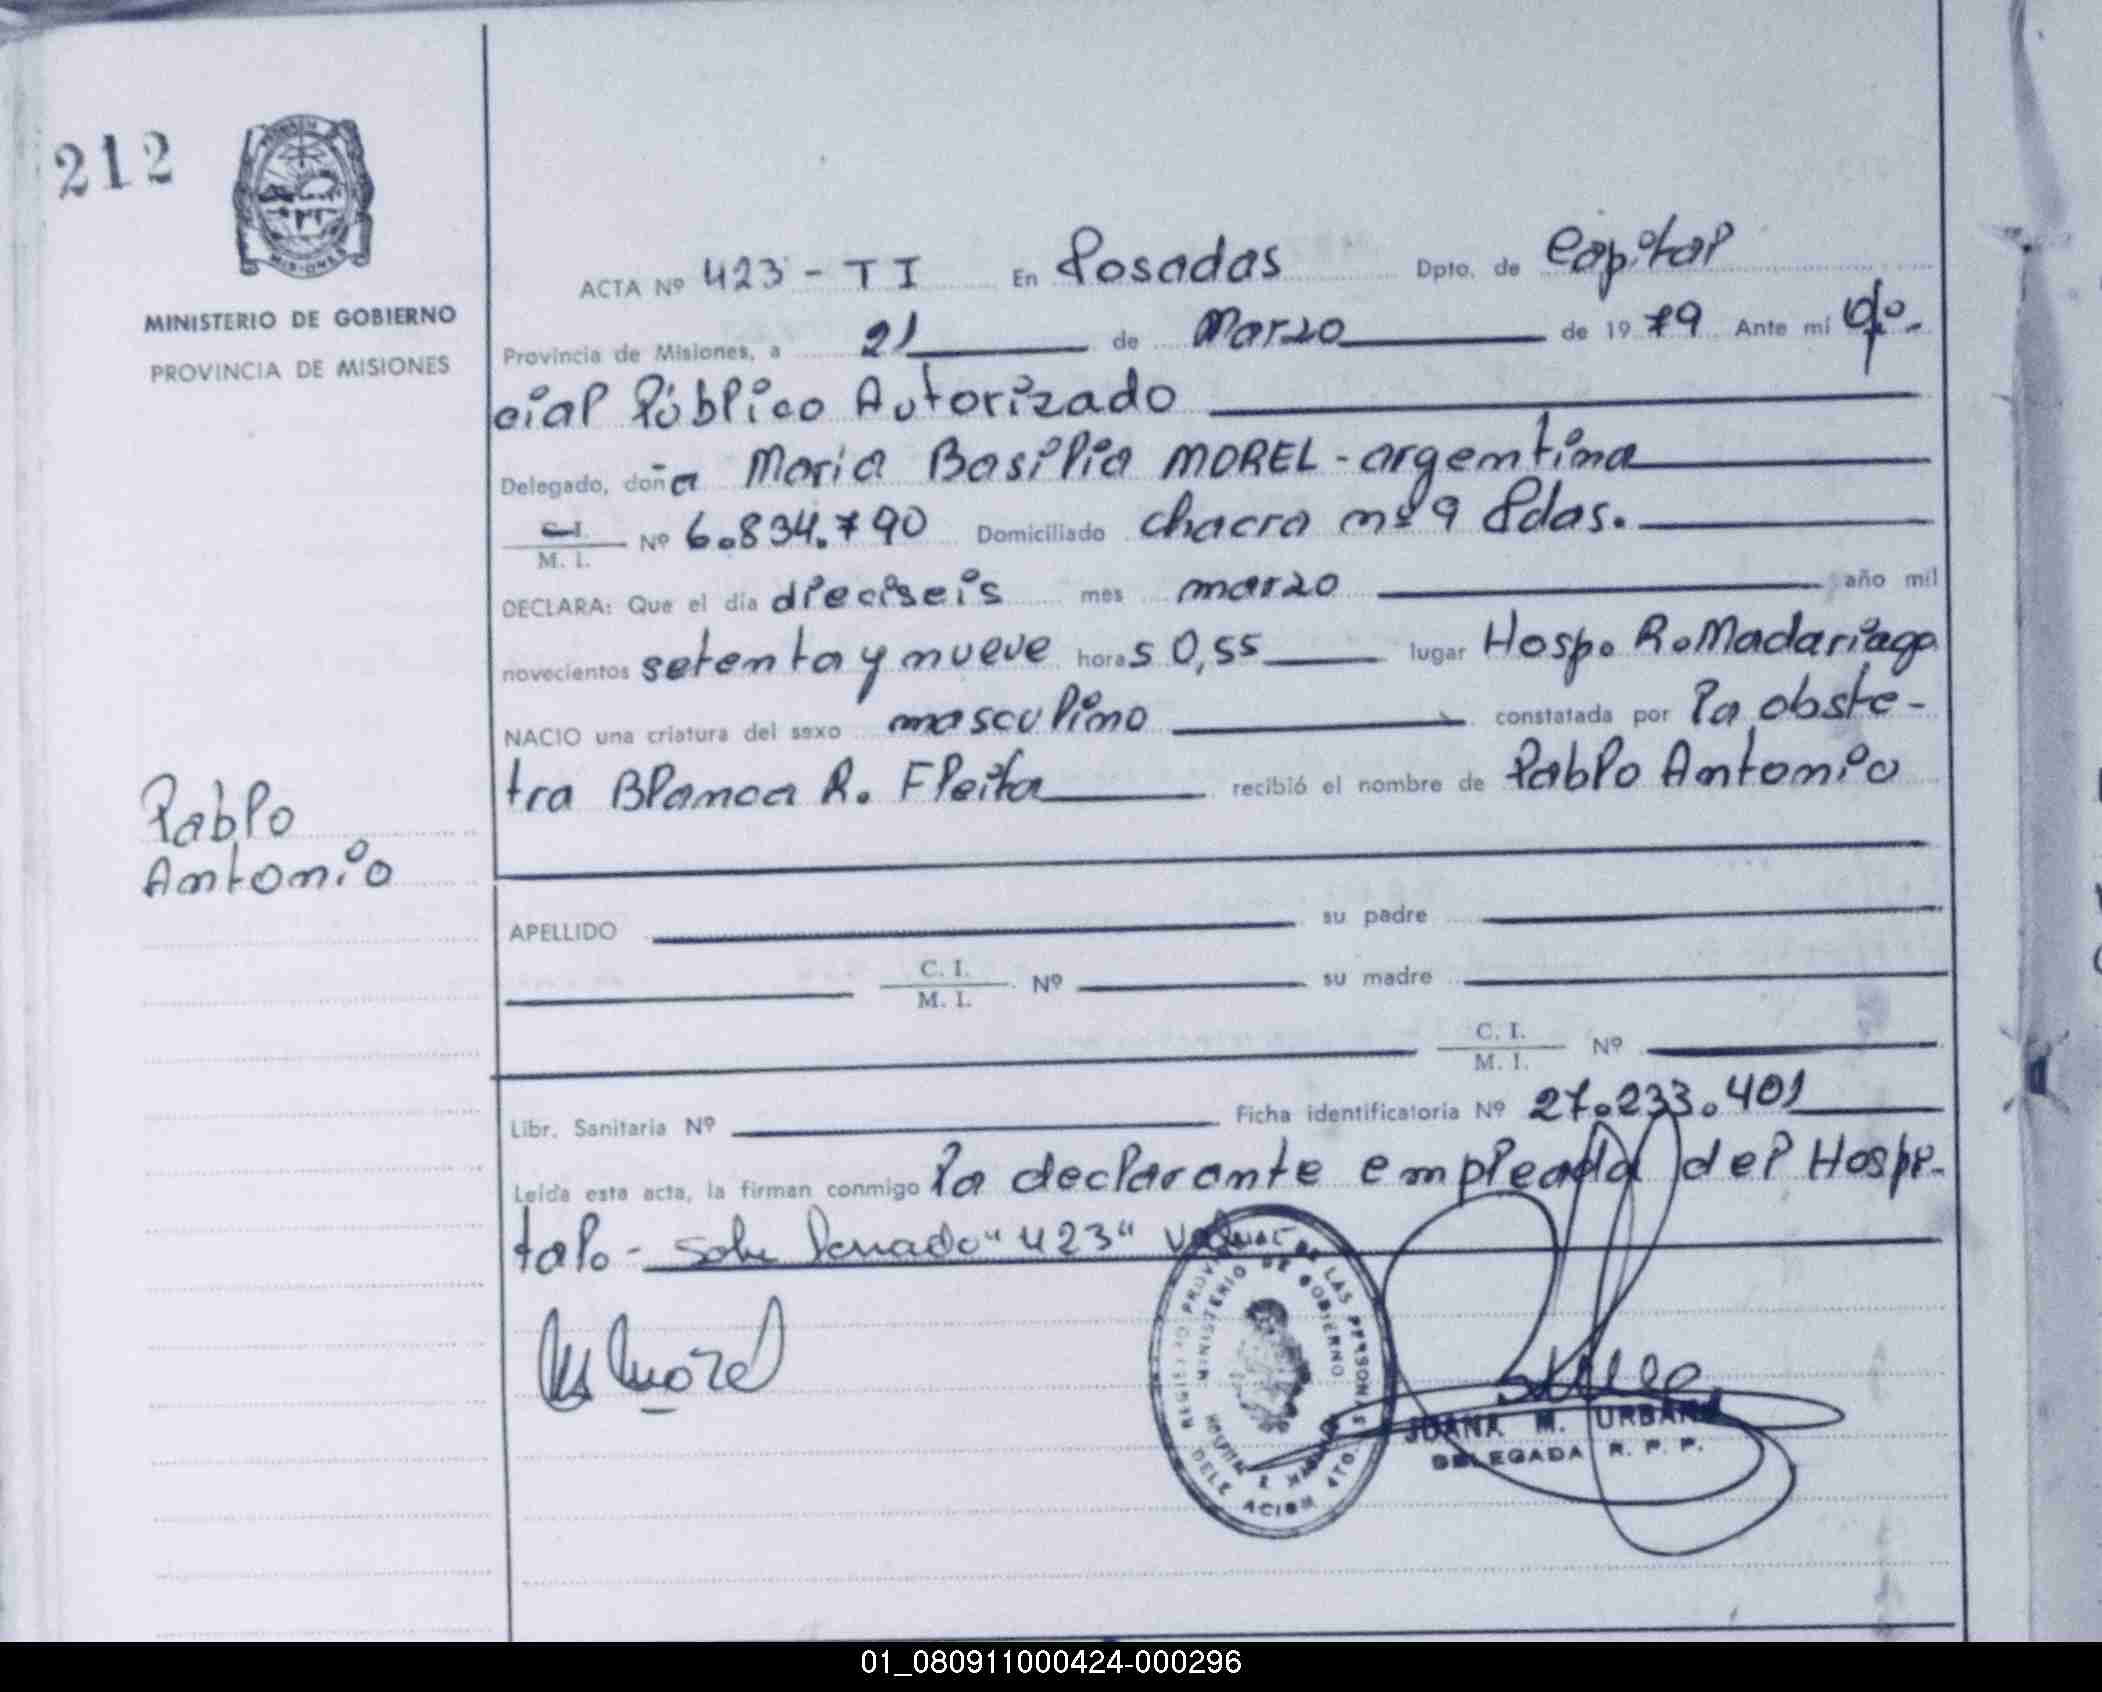 212
MISIONES
MINISTERIO DE GOBIERNO
PROVINCIA DE MISIONES
ACTA Nº 423 - T I En Posadas Dpto. de Capital
Provincia de Misiones, a 21 de Marzo de 1979 Ante mí Ofi-
cial Público Autorizado
Delegado, doña Maria Basilia MOREL - argentina
C. I. / M. I. Nº 6.834.790 Domiciliado chacra nº 9 Pdas.
DECLARA: Que el día dieciseis mes marzo año mil
novecientos setenta y nueve horas 0,55 lugar Hosp. R. Madariaga
NACIO una criatura del sexo masculino constatada por la obste-
tra Blanca R. Fleita recibió el nombre de Pablo Antonio
Pablo
Antonio
APELLIDO su padre
C. I. / M. I. Nº su madre
C. I. / M. I. Nº
Libr. Sanitaria Nº Ficha identificatoria Nº 27.233.401
Leída esta acta, la firman conmigo la declarante empleada del Hospi-
tal. - sobre borrado "423" vale
Morel
REGISTRO PROVINCIAL DE LAS PERSONAS
MINISTERIO DE GOBIERNO
JUANA M. URBAN
DELEGADA R. P. P.
01_080911000424-000296